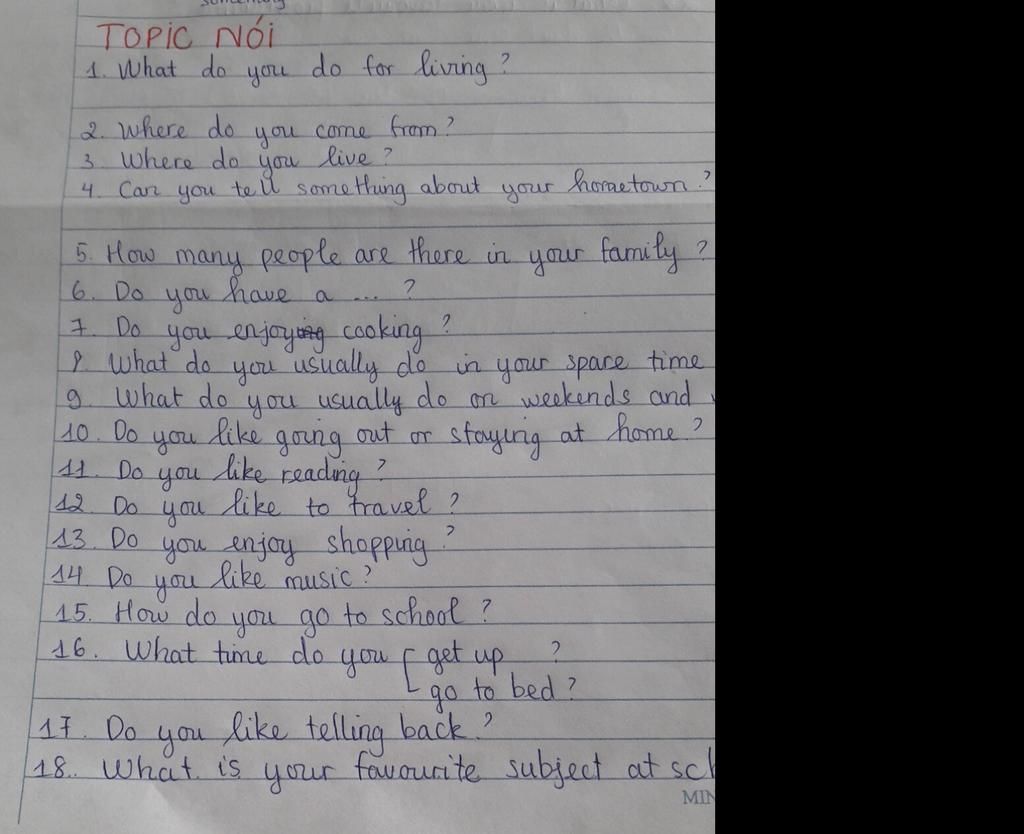 something
TOPIC NÓI
1. What do you do for living?
2. Where do you come from?
3. Where do you live?
4. Can you tell something about your hometown?
5. How many people are there in your family?
6. Do you have a ... ?
7. Do you enjoy cooking?
8. What do you usually do in your spare time
9. What do you usually do on weekends and
10. Do you like going out or staying at home?
11. Do you like reading?
12. Do you like to travel?
13. Do you enjoy shopping?
14. Do you like music?
15. How do you go to school?
16. What time do you get up ?
go to bed?
17. Do you like telling back?
18. What is your favourite subject at sch
MIN